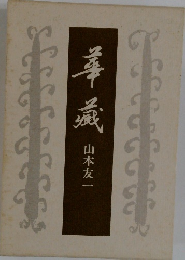 華藏
山本友一